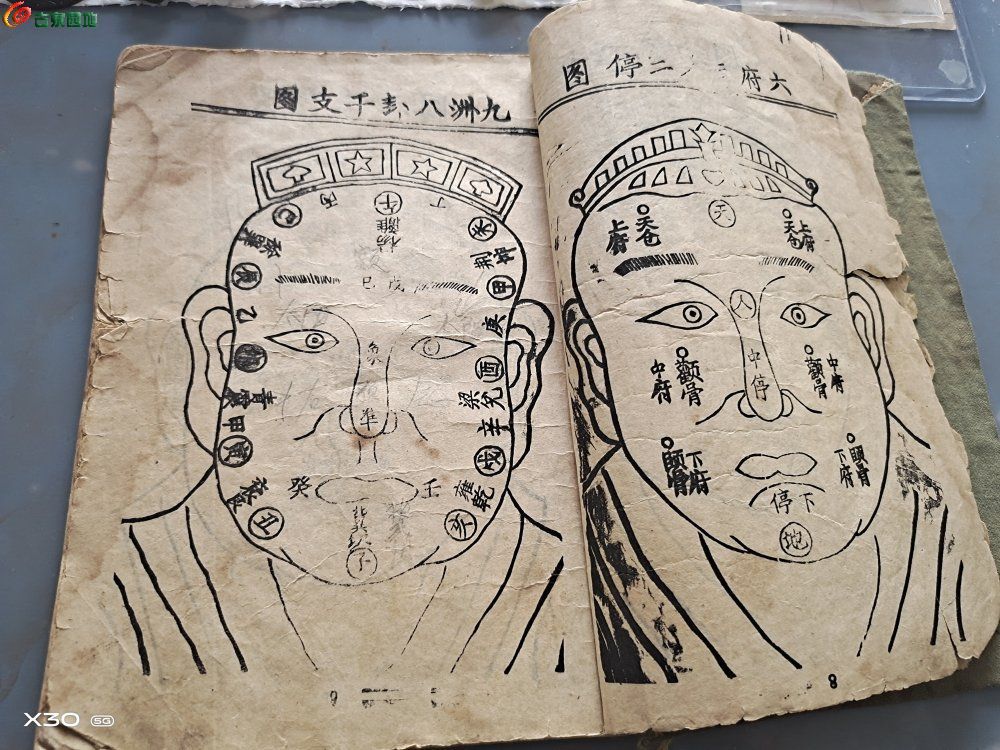 吉泉园地
九洲八卦干支图
丙
午
丁
巳
未
离
扬
徐
巽
荆
坤
辰
甲
巳 戊
乙
庚
卯
酉
兑
梁
青
震
準
辛
甲
寅
戌
雍
乾
癸
壬
丑
子
9
六府三才三停图
天
天仓
上府
天仓
上府
人
中府
颧骨
中停
颧骨
中府
下府
頤骨
下府
下停
地
8
X30 5G